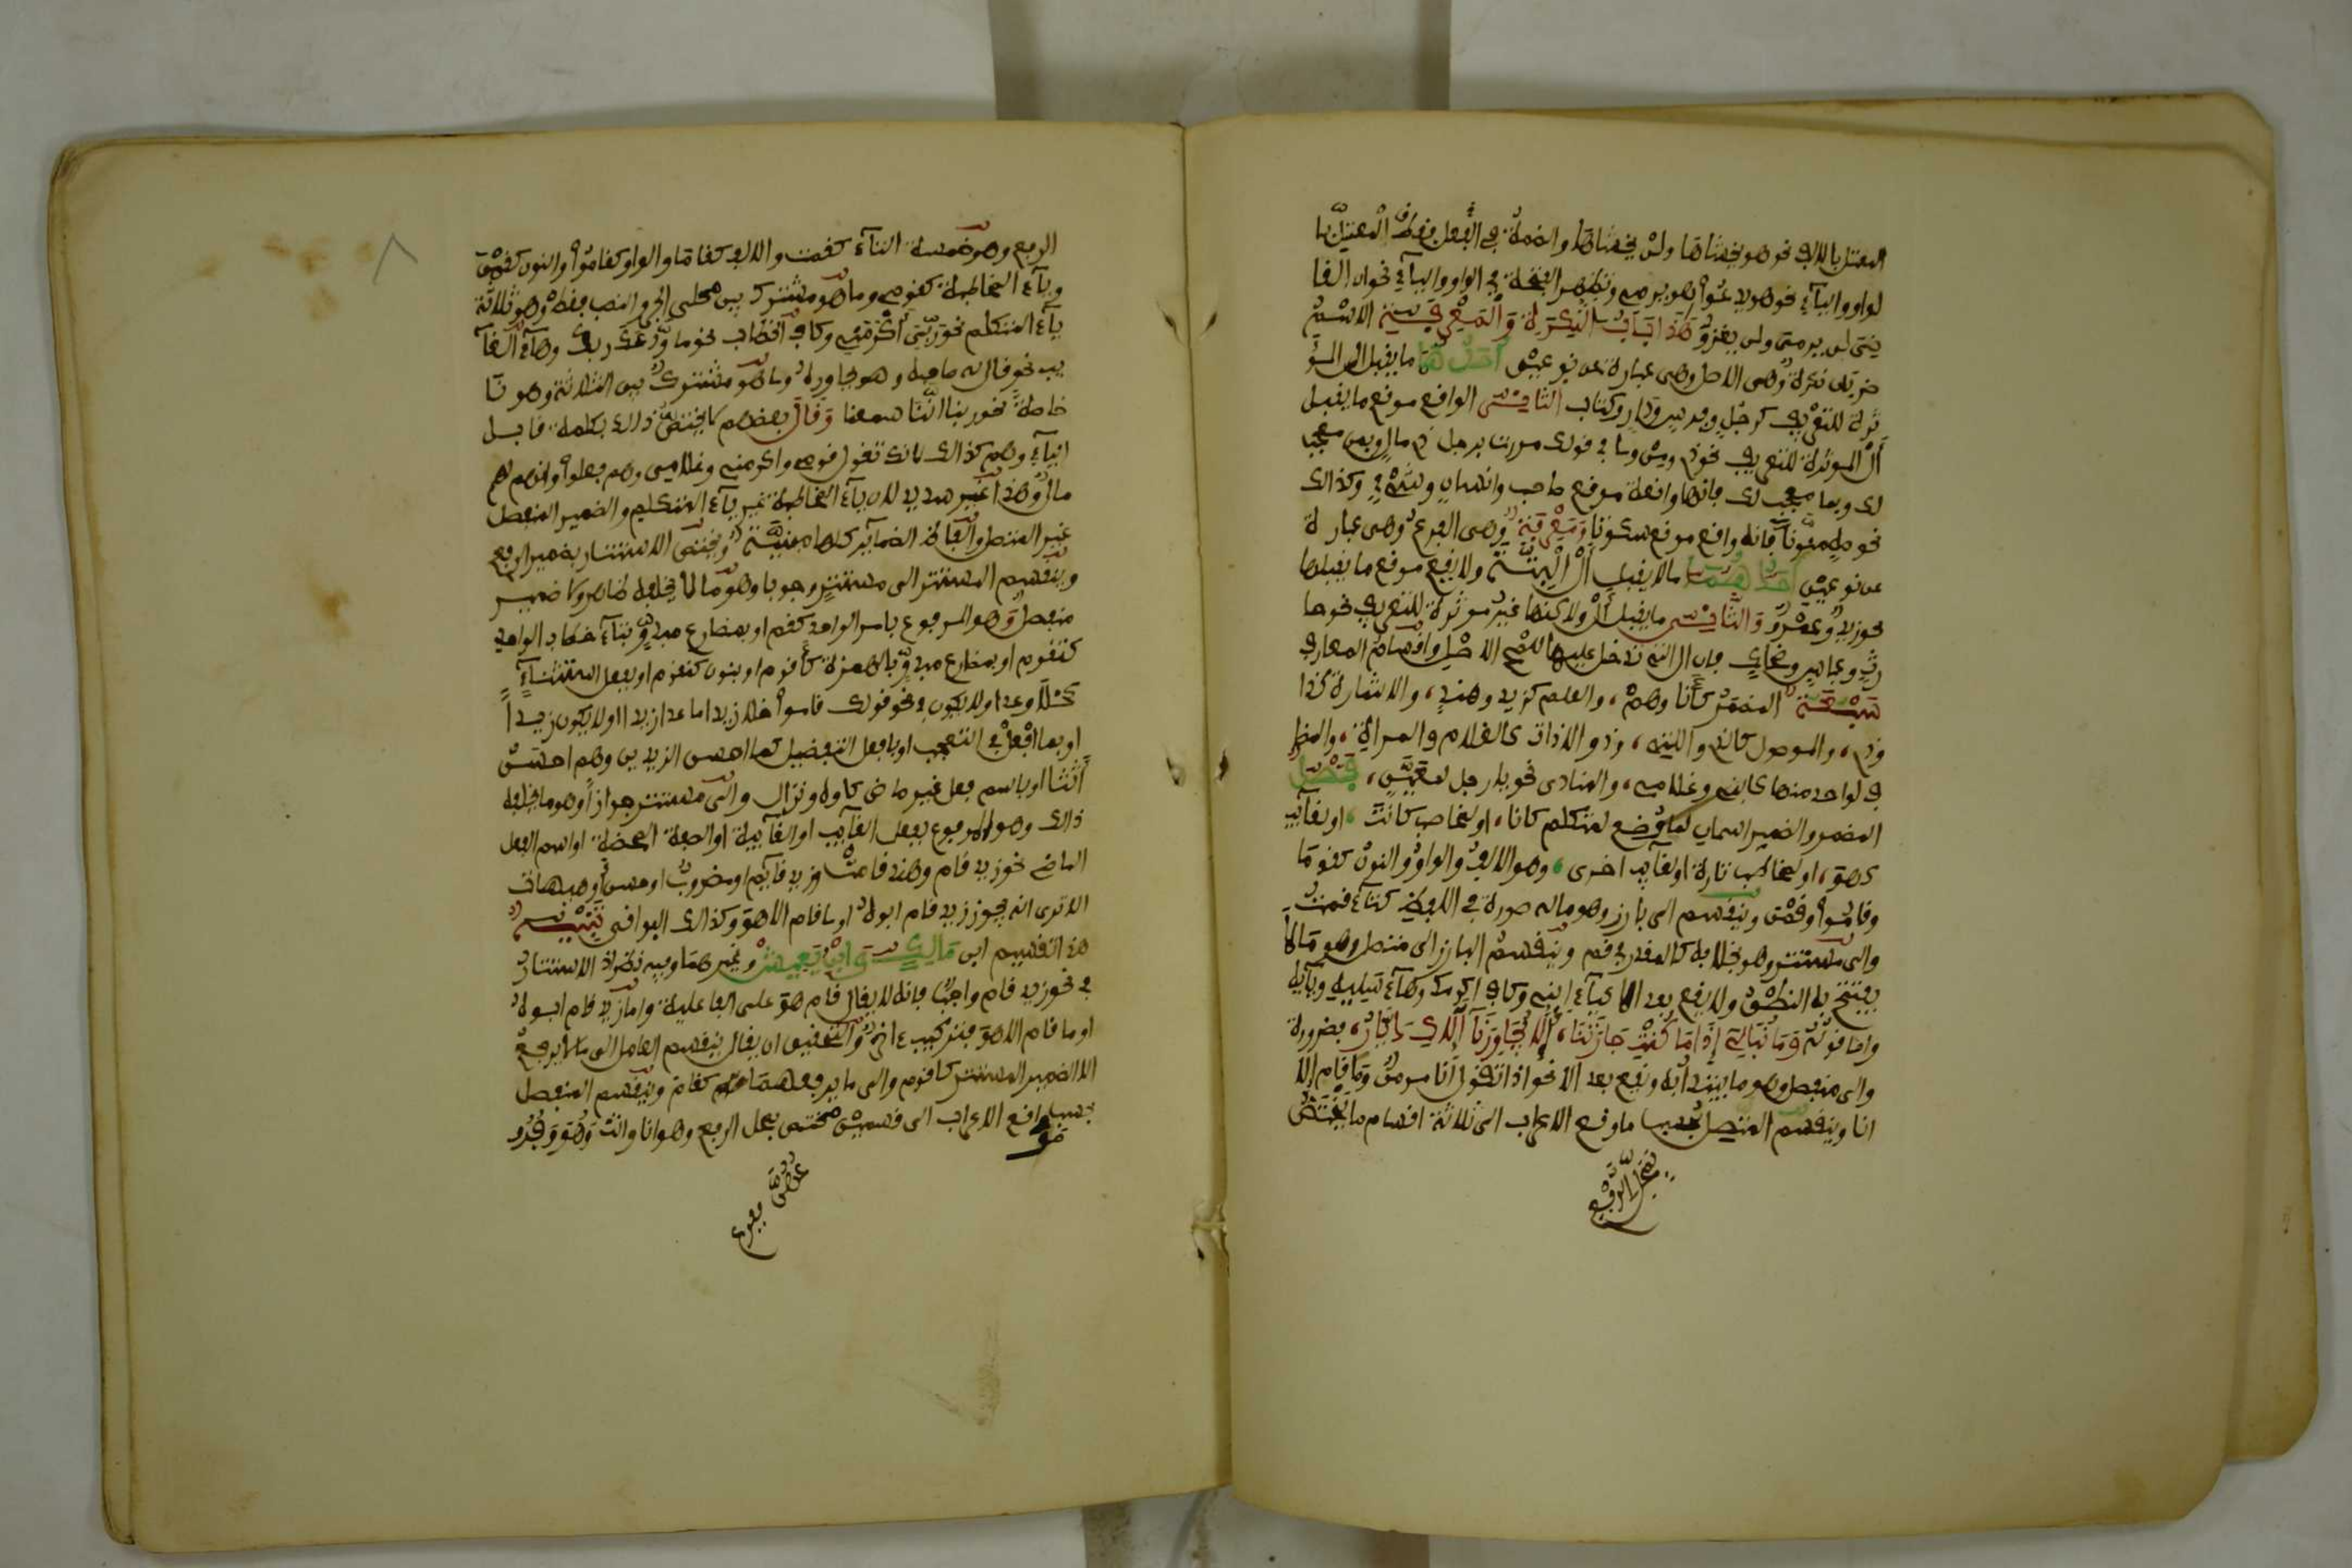 المعتل بالالف نحو هو يخشاها ولن يخشاها والضمة في الفعل فقط المعتل با
لواو والياء نحو هو يدعوا هو يرمي وتظهر الفتحة في الواو والياء نحو ان القا
ضي لن يرمي ولن يغزو هذا باب النكرة والمعرفة الاسم
ضربان نكرة وهي الاصل وهي عبارة عن نوعين احدهما ما يقبل ال المؤ
ثرة للتعريف كرجل وفرس ودار وكتاب الثاني الواقع موقع ما يقبل
ال المؤثرة للتعريف نحو ذي ومن وما في قولك مررت برجل ذي مال وبمن معجب
لك وبما معجب لك فانها واقعة موقع صاحب وانسان وشيء وكذالك
نحو صه منونا فانه واقع موقع سكوتا ومعرفة وهي الفرع وهي عبارة
عن نوعين احدهما ما لا يقبل ال البتة ولا يقع موقع ما يقبلها
نحو زيد وعمرو والثاني ما يقبل ال ولاكنها غير مؤثرة للتعريف نحو حا
رث وعباس وضحاك فان ال التي تدخل عليها للمح الاصل واقسام المعارف
سبعة المضمر كأنا وهم، والعلم كزيد وهند، والاشارة كذا
وذي، والموصول كالذي والتي، وذو الاداة كالغلام والمراة، والمضا
ف لواحد منها كابني وغلامي، والمنادى نحو يا رجل لمعين، فصل
المضمر والضمير اسمان لما وضع لمتكلم كانا، او لمخاطب كانت، او لغائب
كهو، او لمخاطب تارة او لغائب اخرى، وهو الالف والواو والنون كقوما
وقاموا وقمن وينقسم الى بارز وهو ما له صورة في اللفظ كتاء قمت
والى مستتر وهو بخلافه كالمقدر في قم وينقسم البارز الى متصل وهو ما لا
يفتتح به النطق ولا يقع بعد الا كياء ابني وكاف اكرمك وهاء سلنيه ويائه
واما قوله وما نبالي إذا ما كنت جارتنا، ألا يجاورنا إلاك ديار، فضرورة
والى منفصل وهو ما يبتدا به ويقع بعد الا نحو اذ تقول انا مومن وما قام الا
انا وينقسم المتصل بحسب مواقع الاعراب الى ثلاثة اقسام ما يختص
بمحل الرفع
الرفع وهو خمسة التاء كقمت والالف كقاما والواو كقاموا والنون كقمن
وياء المخاطبة كقومي وما هو مشترك بين محلي الجر والنصب فقط وهو ثلاثة
ياء المتكلم نحو ربي أكرمني وكاف الخطاب نحو ما ودعك ربك وهاء الغا
يب نحو قال له صاحبه وهو يحاوره وما هو مشترك بين الثلاثة وهو نا
خاصة نحو ربنا اننا سمعنا وقال بعضهم لا يختص ذالك بكلمة نا بل
الياء وهم كذالك لانك تقول قومي واكرمني وغلامي وهم فعلوا وانهم لهم
مال وهذا غير سديد لان ياء المخاطبة غير ياء المتكلم والضمير المنفصل
غير المتصل والفاظ الضمائر كلها مبنية ويختص الاستتار بضمير الرفع
وينقسم المستتر الى مستتر وجوبا وهو ما لا يخلفه ظاهر ولا ضمير
منفصل وهو المرفوع بامر الواحد كقم او بمضارع مبدو بتاء خطاب الواحد
كتقوم او بمضارع مبدو بالهمزة كأقوم او بنون كنقوم او بفعل استثناء
كخلا وعدا ولا يكون في نحو قولك قاموا خلا زيدا ما عدا زيدا او لا يكون زيدا
او بما افعل في التعجب او بافعل التفضيل كما احسن الزيدين وهم احسن
أثثا او باسم فعل غير ماض كاوه ونزال والى مستتر جوازا وهو ما يخلفه
ذالك وهو المرفوع بفعل الغائب او الغائبة او الصفة المحضة او اسم الفعل
الماضي نحو زيد قام وهند قامت وزيد قائم او مضروب او حسن وهيهات
الا ترى انه يجوز زيد قام ابوه او ما قام الا هو وكذالك البواقي تنبيه
هذا تقسيم ابن مالك وابن يعيش وغيرهما وفيه نظر اذ الاستتار
في نحو زيد قام واجب فانه لا يقال قام هو على الفاعلية واما زيد قام ابوه
او ما قام الا هو فتركيب ءاخر والتحقيق ان يقال ينقسم العامل الى ما لا يرفع
الا الضمير المستتر كاقوم والى ما يرفعهما كقام وينقسم المنفصل
بحسب مواقع الاعراب الى قسمين مختص بمحل الرفع وهو انا وانت وهو وفروع